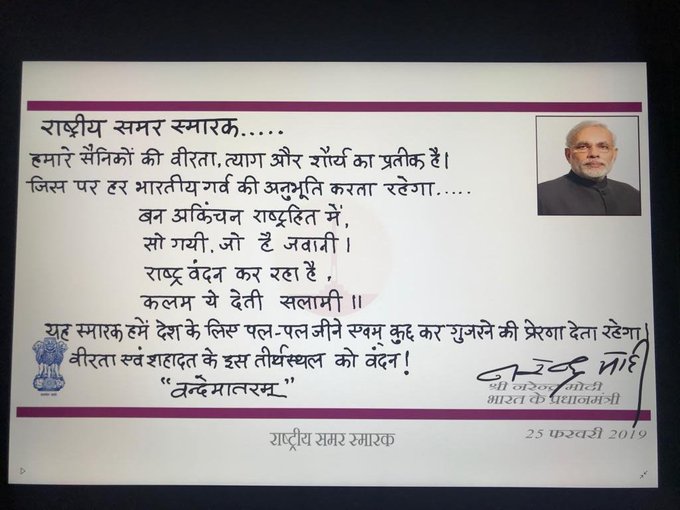 राष्ट्रीय समर स्मारक.....
हमारे सैनिकों की वीरता, त्याग और शौर्य का प्रतीक है।
जिस पर हर भारतीय गर्व की अनुभूति करता रहेगा.....
बन अकिंचन राष्ट्रहित में,
सो गयी, जो है जवानी।
राष्ट्र वंदन कर रहा है,
कलम ये देती सलामी॥
यह स्मारक हमें देश के लिए पल-पल जीने एवम् कुछ कर गुजरने की प्रेरणा देता रहेगा।
वीरता एवं शहादत के इस तीर्थस्थल को वंदन!
"वन्देमातरम्"
नरेन्द्र मोदी
श्री नरेन्द्र मोदी
भारत के प्रधानमंत्री
25 फरवरी 2019
राष्ट्रीय समर स्मारक